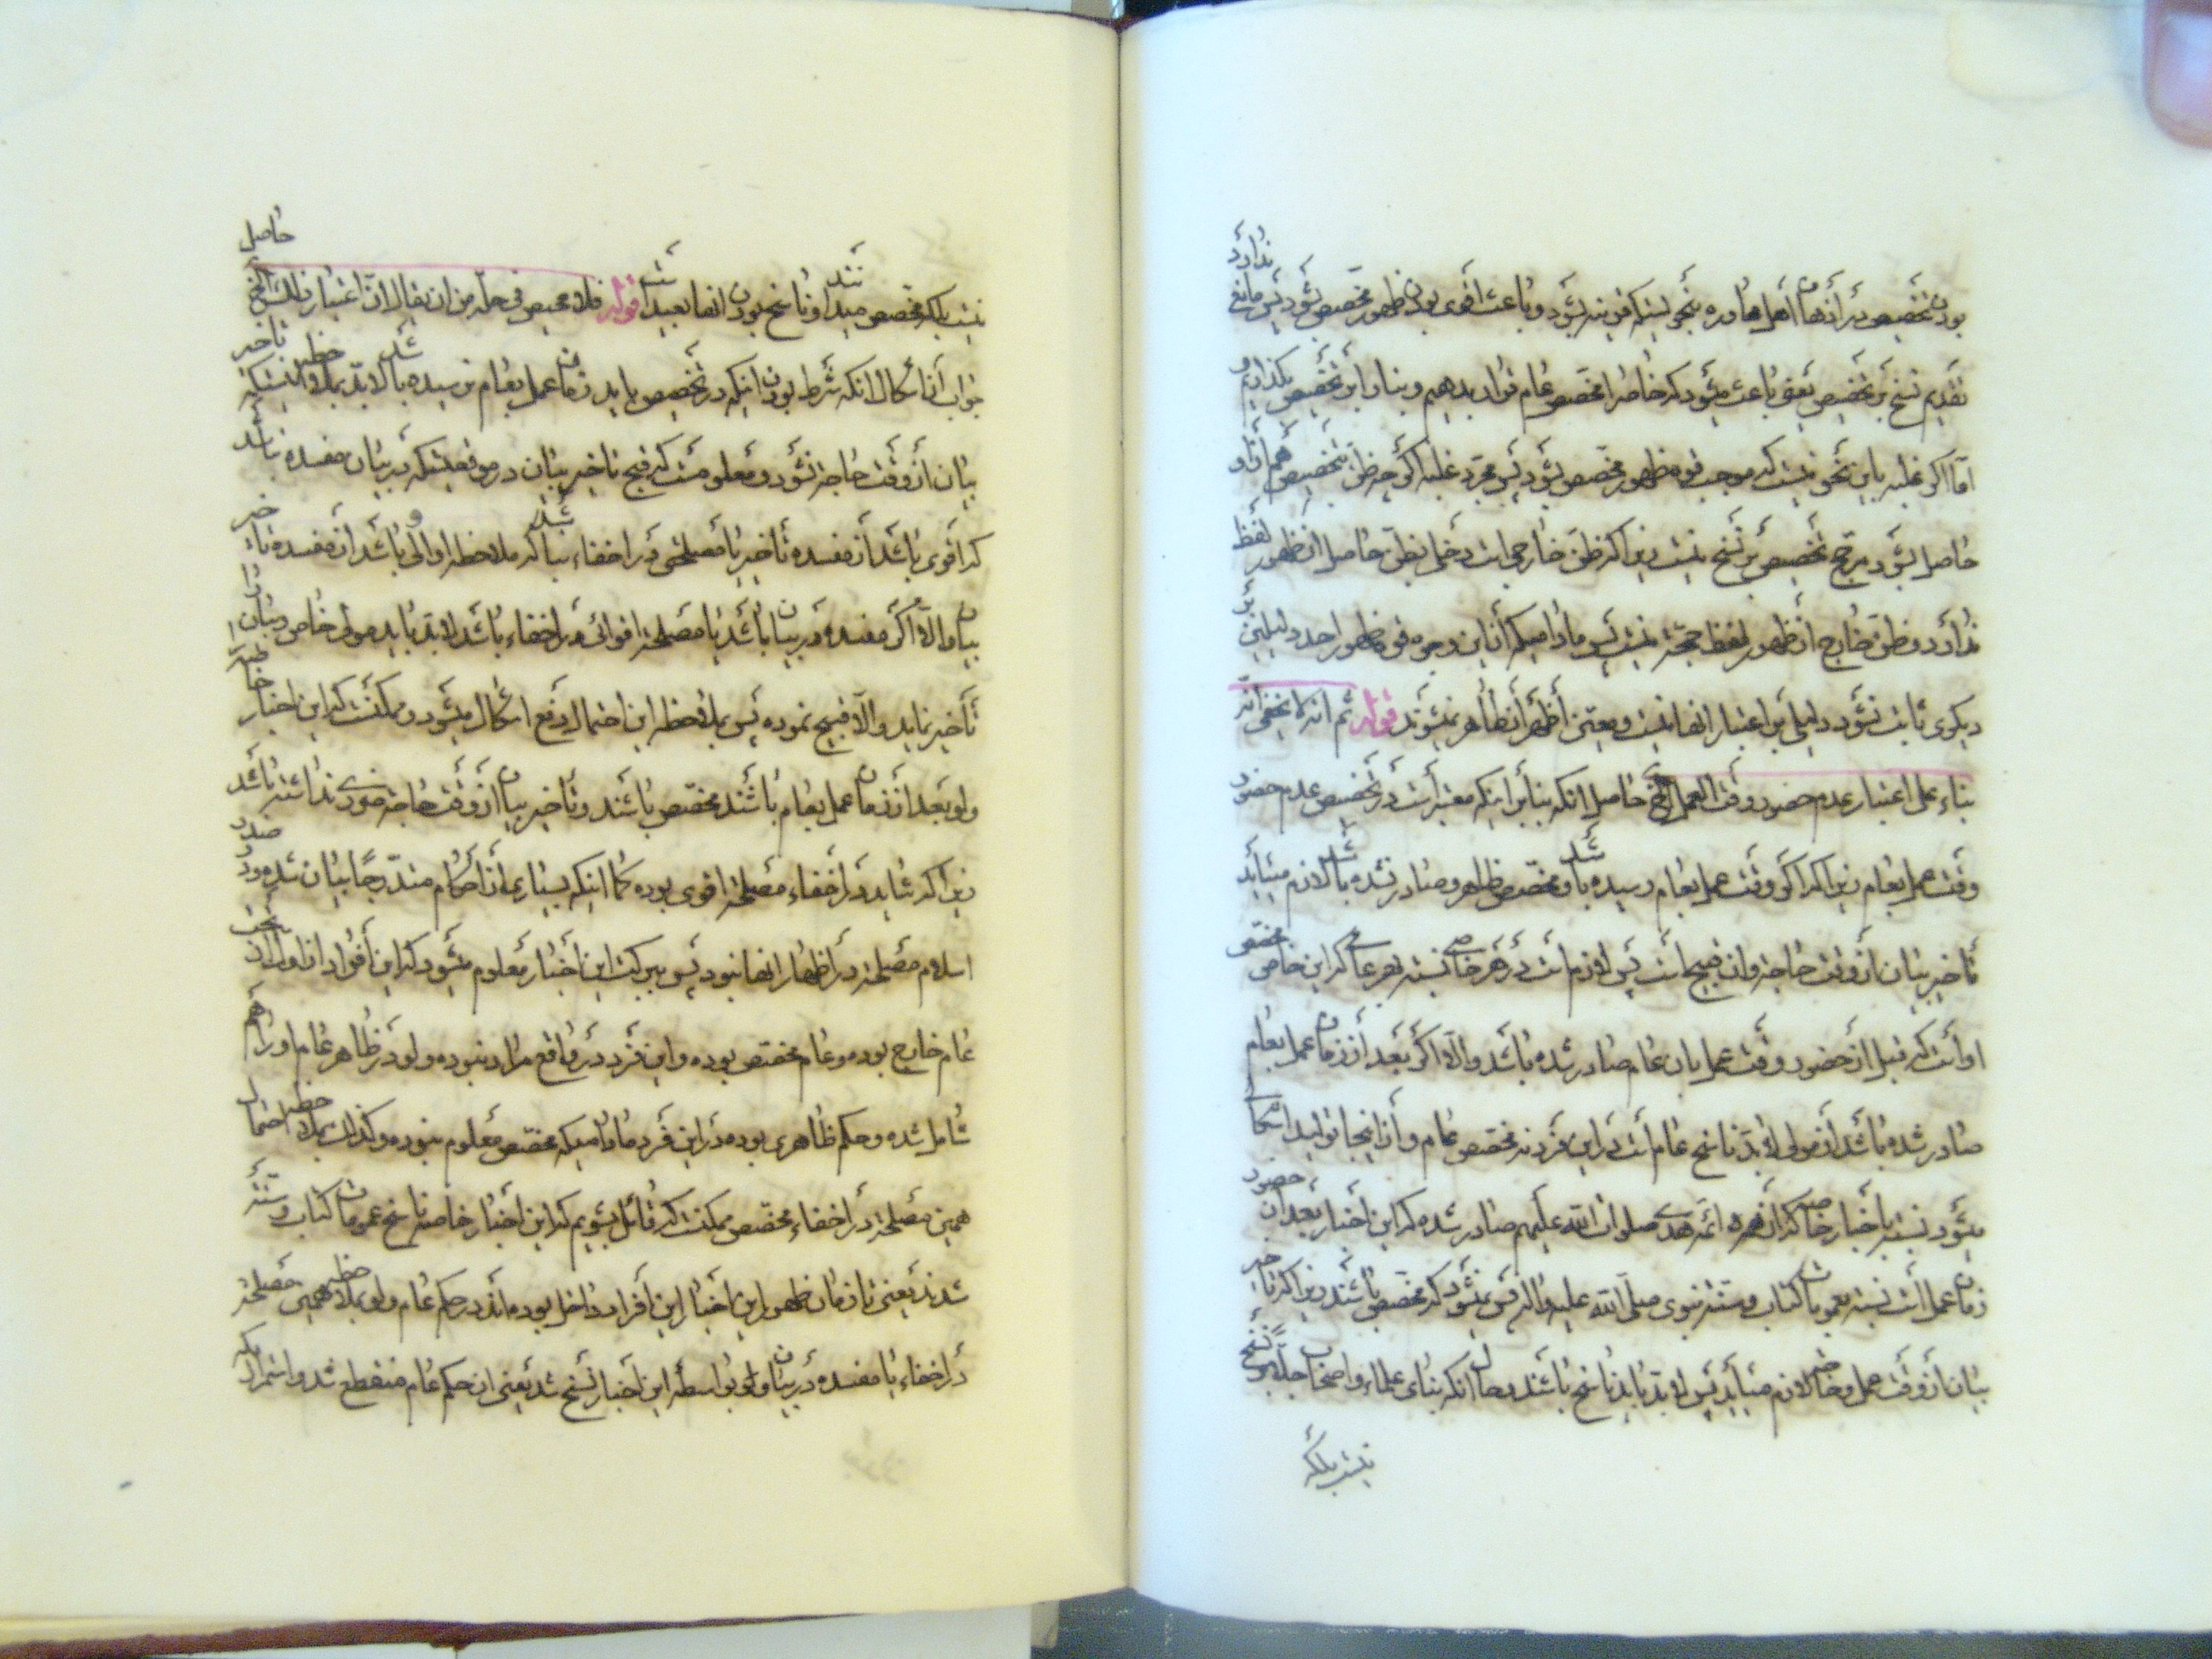 بودن تخصیص در اذهان اهل محاوره بنحویستکه قرینه بشود و باعث اقوی بودن ظهور تخصیص بشود پس مانع ندارد
تقدیم نسخ بر تخصیص یعنی باعث میشود که خاص را مخصص عام قرار بدهیم و بنا را بر تخصیص بگذاریم و
اما اگر غلبه باین نحو نیست که موجب قوه ظهور تخصیص بشود پس مجرد غلبه اگر چه ظن بتخصیص هم از او
حاصل بشود مرجح تخصیص بر نسخ نیست زیرا که ظن خارجی است دخلی بظن حاصل از ظهور لفظ
ندارد و ظن خارج از ظهور لفظ حجة نیست پس مادامیکه از این وجوه قوه ظهور احد دلیلین بر
دیگری ثابت نشود دلیلی بر اعتبار انها نیست و یعنی أظهر از ظاهر نمیشوند قوله ثم انه لا یخفی انه
بناء علی اعتبار عدم حضور وقت العمل الخ حاصل انکه بنا بر اینکه معتبر است در تخصیص عدم حضور
وقت عمل بعام زیرا که اگر وقت عمل بعام رسیده باشد و مخصص ظاهر و صادر نشده باشد لازم میاید
تأخیر بیان از وقت حاجة و ان قبیح است پس لازم است در هر خاصی نسبة بهر عامی که این خاص مخصص
او است که قبل از حضور وقت عمل بان عام صادر شده باشد و الا اگر بعد از زمان عمل بعام
صادر شده باشد از مولی لابد ناسخ عام است در این فرد نه مخصص عام و از اینجا تولید اشکال
میشود نسبت باخبار خاصه که از ائمه هدی صلوات الله علیهم صادر شده که این اخبار بعد از حضور
زمان عمل است نسبة بعمومات کتاب و سنة نبوی صلی الله علیه و اله پس نمیشود که مخصص باشند زیرا که تأخیر
بیان از وقت عمل و حاجة لازم میاید پس لابد باید ناسخ باشند و حال انکه بنای علماء و اصحاب جلاً بر نسخ
نیست بلکه
نیست بلکه مخصص میدانند و ناسخ بودن انها بعید است قوله فلا محیص فی حله من ان یقال ان اعتبار ذلک الخ حاصل
جواب از اشکال انکه شرط بودن اینکه در تخصیص باید زمان عمل بعام نرسیده باشد لابد بملاحظه اینستکه تأخیر
بیان از وقت حاجة نشود و معلومست که قبح تاخیر بیان در موقعیستکه در بیان مفسده نباشد
که اقوی باشد از مفسده تأخیر یا مصلحتی در اخفاء نباشد که ملاحظه او اولی باشد از مفسده تاخیر
بیان و الا اگر مفسده در بیان باشد یا مصلحة اقوائی در اخفاء باشد لابد باید مولی خاص و بیان را
تأخیر نماید و الا قبیح نموده پس بملاحظه این احتمال دفع اشکال میشود و ممکنست که این اخبار خاصه
ولو بعد از زمان عمل بعام باشند مخصص باشند و تأخیر بیان از وقت حاجة ضرری نداشته باشد
زیرا که شاید در اخفاء مصلحة اقوی بوده کما اینکه بسیاری از احکام متدرجاً بیان شده و در صدر
اسلام مصلحة در اظهار انها نبود پس ببرکت این اخبار معلوم میشود که این أفراد از اول از تحت
عام خارج بوده و عام مختص بوده و این فرد در واقع مراد نبوده ولو در ظاهر عام او را هم
شامل شده و حکم ظاهری بوده در این فرد مادامیکه مخصص معلوم نبوده و کذلک بملاحظه احتمال
همین مصلحة در اخفاء مخصص ممکنست که قائل بشویم که این اخبار خاصه ناسخ عمومات کتاب و سنة
شدند یعنی تا زمان ظهور این اخبار این افراد داخل بوده اند در حکم عام ولو بملاحظه همین مصلحة
در اخفاء یا مفسده در بیان ولی بواسطه این اخبار نسخ شد یعنی ان حکم عام منقطع شد و استمرار